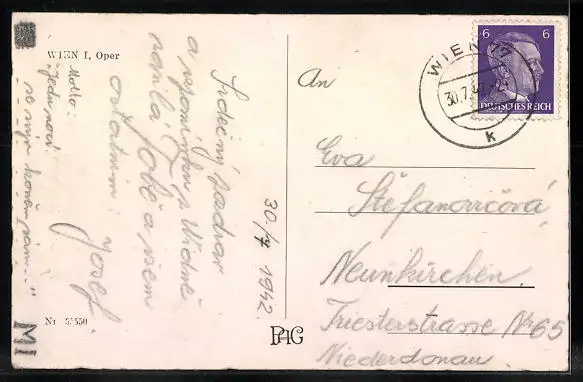 WIEN I, Oper
Motto:
"Jedu nocí
se mýr koněm sám."
Srdečný pozdrav
a vzpomínku z Vídně
posílá Tobě a všem
ostatním
Josef
30/7 1942.
Nr 55550
PAG
MI
An
Eva
Štefanovičová
Neunkirchen.
Triesterstrasse Nr 65
Niederdonau.
WIEN 77
30.7.42
k
6 6
DEUTSCHES REICH